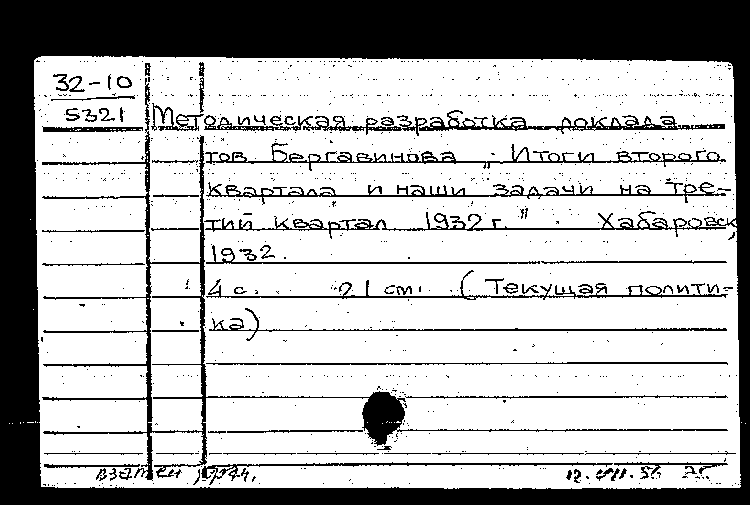 32-10
5321 Методическая разработка доклада
тов. Бергавинова „Итоги второго
квартала и наши задачи на тре-
тий квартал 1932 г." . Хабаровск,
1932.
4 с. 21 см. (Текущая полити-
ка)
взамен
12.VII.56